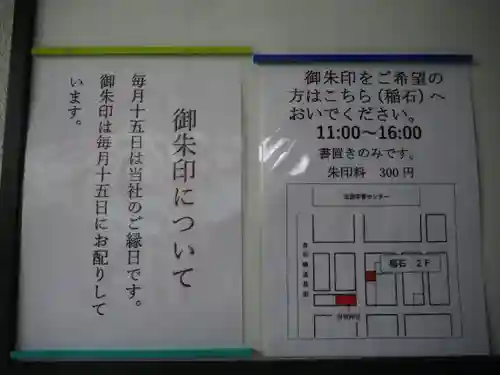 御朱印について
毎月十五日は当社のご縁日です。
御朱印は毎月十五日にお配りして
います。
御朱印をご希望の
方はこちら（稲石）へ
おいでください。
11:00～16:00
書置きのみです。
朱印料 300円
稲石 2F